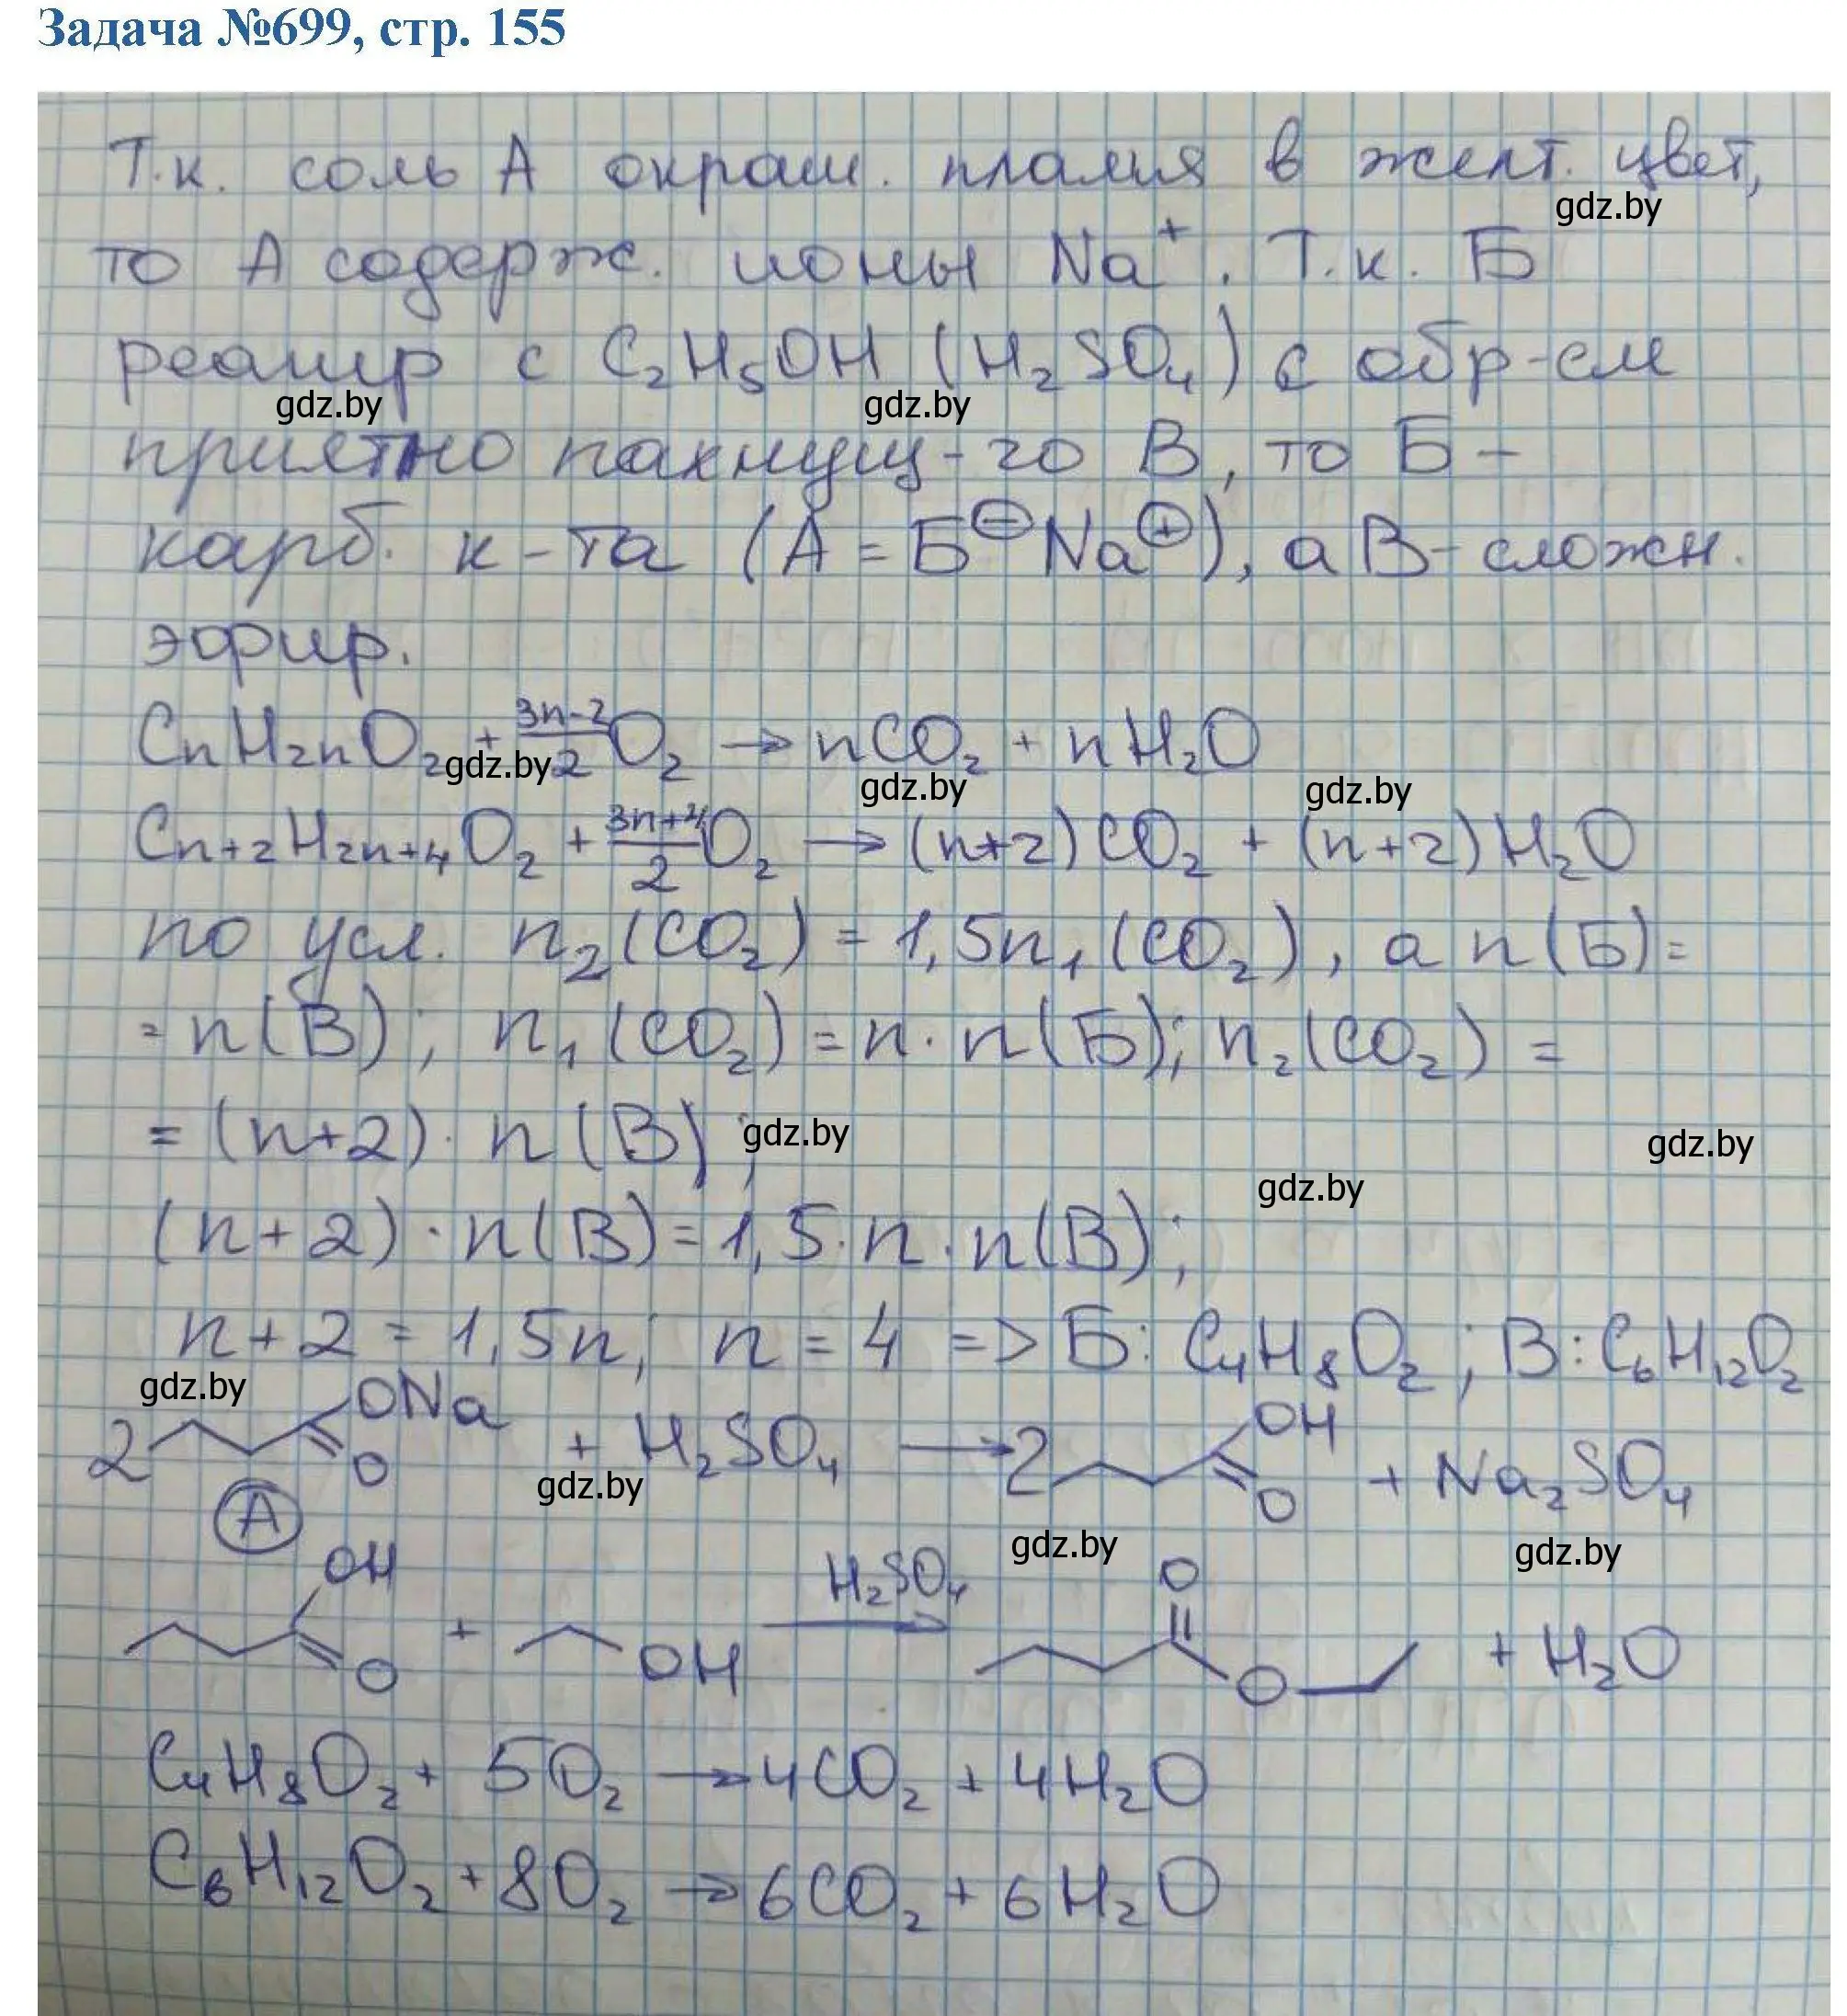 Задача №699, стр. 155
Т.к. соль А окраш. пламя в желт. цвет,
gdz.by
то А содерж. ионы Na⁺. Т.к. Б
реагир с C₂H₅OH (H₂SO₄) с обр-ем
gdz.by gdz.by
приятно пахнущ-го В, то Б -
карб. к-та (А = Б⊖Na⊕), а В - сложн.
эфир.
CnH₂nO₂ + (3n-2)/2 O₂ → nCO₂ + nH₂O
gdz.by gdz.by gdz.by
Cn+2H2n+4O₂ + (3n+4)/2 O₂ → (n+2)CO₂ + (n+2)H₂O
по усл. n₂(CO₂) = 1,5n₁(CO₂), а n(Б) =
= n(В); n₁(CO₂) = n · n(Б); n₂(CO₂) =
= (n+2) · n(В);
gdz.by gdz.by
gdz.by
(n+2) · n(В) = 1,5 · n · n(В);
n + 2 = 1,5n; n = 4 => Б: C₄H₈O₂; В: C₆H₁₂O₂
gdz.by
2 ONa O + H₂SO₄ → 2 OH O + Na₂SO₄
gdz.by
А
gdz.by gdz.by
OH O + OH H₂SO₄ → O O + H₂O
C₄H₈O₂ + 5O₂ → 4CO₂ + 4H₂O
C₆H₁₂O₂ + 8O₂ → 6CO₂ + 6H₂O